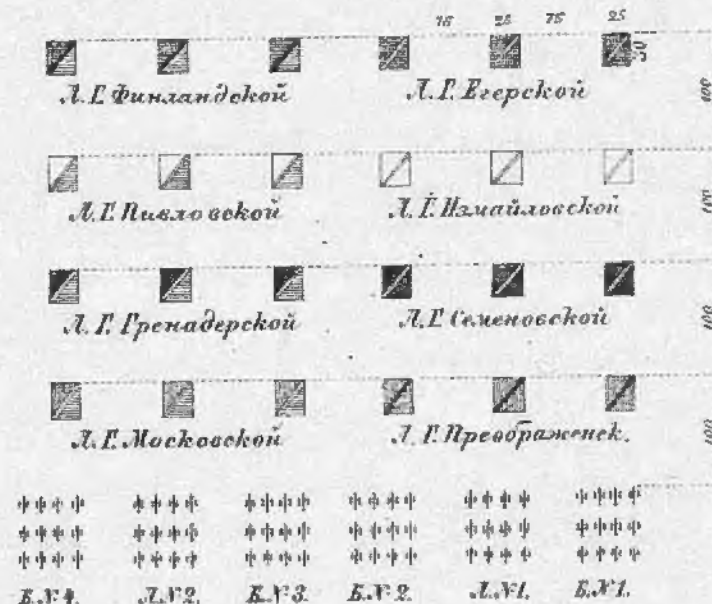 75 25 75 25
50
Л. Г. Финландской Л. Г. Егерской
100
Л. Г. Павловской Л. Г. Измайловской
100
Л. Г. Гренадерской Л. Г. Семеновской
100
Л. Г. Московской Л. Г. Преображенск.
100
Б. № 4. Л. № 2. Б. № 3. Б. № 2. Л. № 1. Б. № 1.